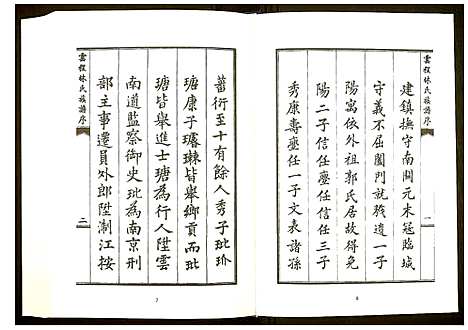 雲程林氏族譜序
一
建鎮撫守南關元末冠臨城
守義不屈闔門就殘遺一子
陽寓依外祖郭氏居故得免
陽二子信任壺任信任三子
秀康壽壺任一子文表諸孫
6
蕃衍至十有餘人秀子玭玠
瑭康子璿琳皆舉鄉貢而玭
瑭皆舉進士瑭為行人陞雲
南道監察御史玭為南京刑
部主事遷員外郎陞制江按
雲程林氏族譜序
二
7